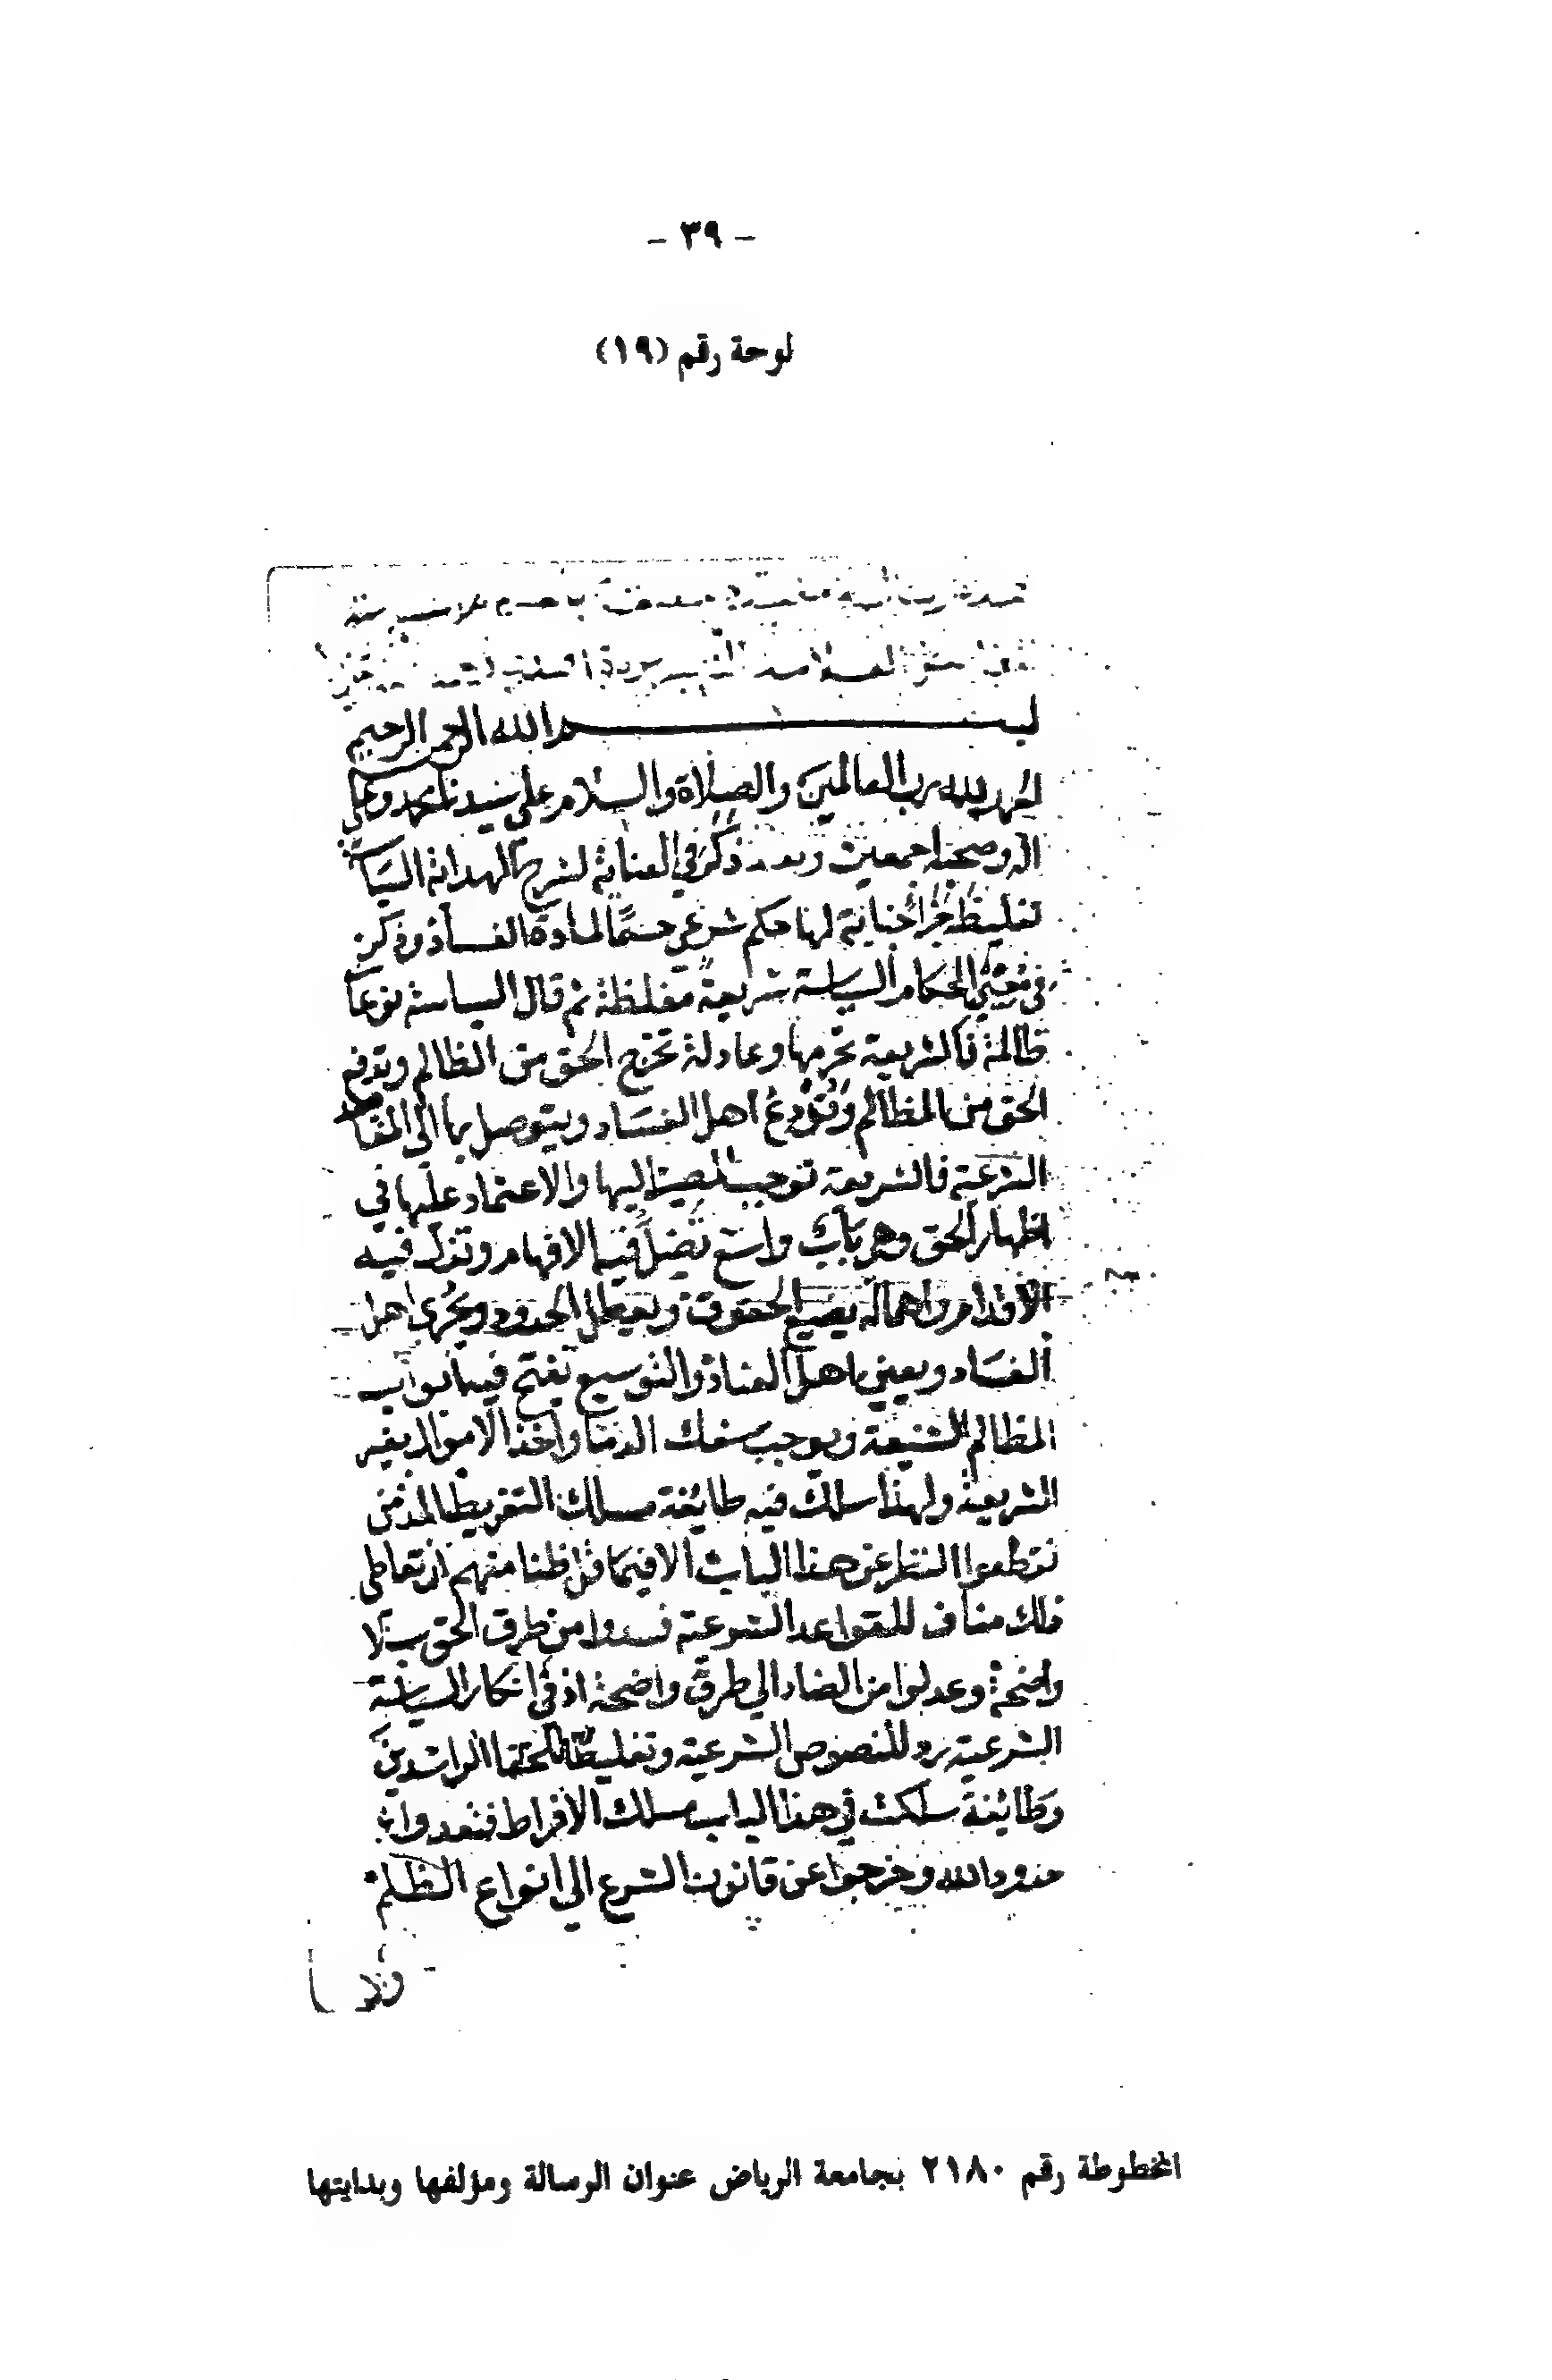 - ٣٩ -
لوحة رقم (١٩)
بسم الله الرحمن الرحيم
الحمد لله رب العالمين والصلاة والسلام على سيدنا محمد وعلى
اله وصحبه اجمعين وبعد ذكر في العناية لشرح الهداية السياسة
تغليظ جزا جناية لها حكم شرعي حسمًا لمادة الفساد وذكر
في معين الحكام السياسة شريعة مغلظة ثم قال السياسة نوعا
ظالمة فالشريعة تحرمها وعادلة تخرج الحق من الظالم وتدفع
الحق من المظالم وتودع اهل الفساد ويتوصل بها الى المقاصد
الشرعية فالشريعة توجب المصير اليها والاعتماد عليها في
اظهار الحق وهي باب واسع تضل فيه الافهام وتزل فيه
الاقدام واهماله يضيع الحقوق ويعطل الحدود ويجرى اهل
الفساد ويعين اهل العناد والتوسيع يفتح فيه ابواب
المظالم الشنيعة ويوجب سفك الدما واخذ الاموال بغير
الشريعة ولهذا سلك فيه طايفة مسلك التفريط المذمن
فقطعوا النظر عن هذا الباب الا فيما قل ظنا منهم ان تعاطي
ذلك مناف للقواعد الشرعية فسدوا من طرق الحق سبلا
واضحة وعدلوا من العناد الي طرق واضحة اذ في انكار السياسة
الشرعية رد للنصوص الشرعية وتغليطا للخلفا الراشدين
وطايفة سلكت في هذا الباب مسلك الافراط فتعدوا
حدود الله وخرجوا عن قانون الشرع الي انواع الظلم
المخطوطة رقم ٢١٨٠ بجامعة الرياض عنوان الرسالة ومؤلفها وبدايتها